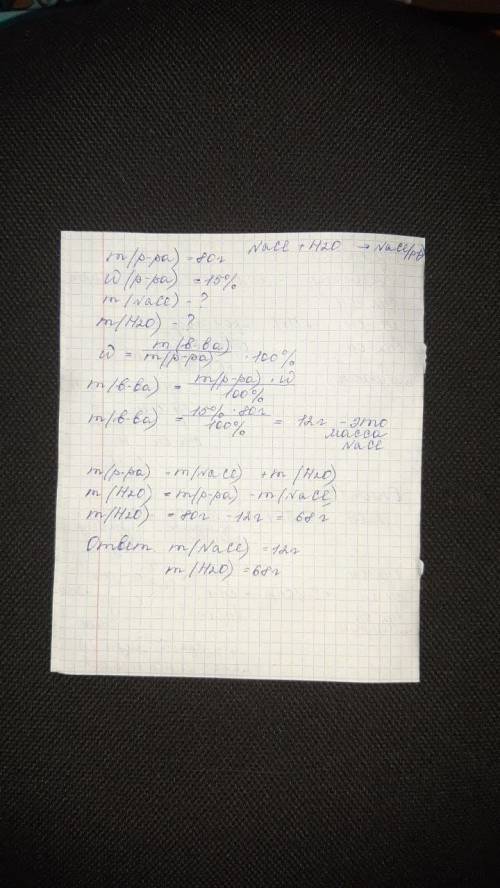 NaCl + H2O → NaCl(р-р)
m(р-ра) = 80г
W(р-ра) = 15%
m(NaCl) - ?
m(H2O) - ?
W = m(в-ва) / m(р-ра) · 100%
m(в-ва) = m(р-ра) · W / 100%
m(в-ва) = 15% · 80г / 100% = 12г - это масса NaCl
m(р-ра) = m(NaCl) + m(H2O)
m(H2O) = m(р-ра) - m(NaCl)
m(H2O) = 80г - 12г = 68г
Ответ m(NaCl) = 12г
m(H2O) = 68г